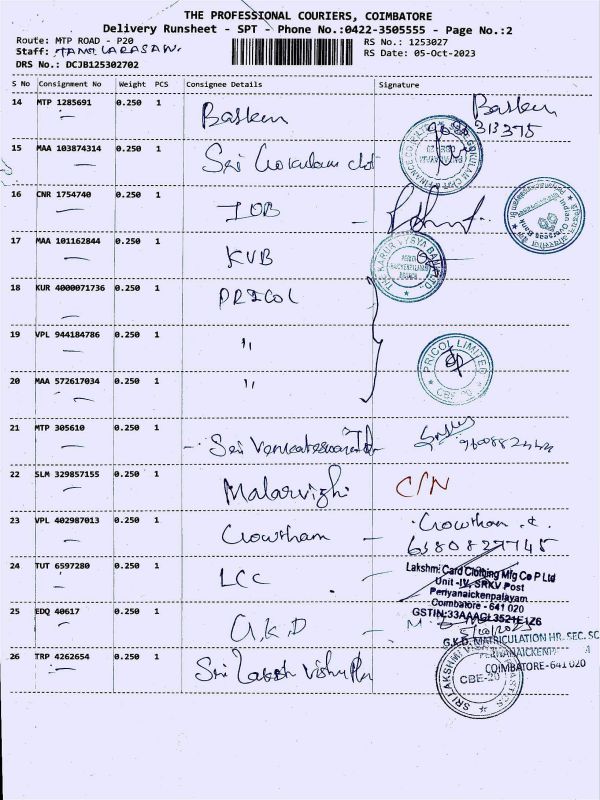 THE PROFESSIONAL COURIERS, COIMBATORE
Delivery Runsheet - SPT - Phone No.:0422-3505555 - Page No.:2
Route: MTP ROAD - P20
RS No.: 1253027
Staff:
RS Date: 05-Oct-2023
DRS No.: DCJB125302702
S No Consignment No Weight PCS Consignee Details Signature
14 MTP 1285691 0.250 1 Baskar Baskar
313375
15 MAA 103874314 0.250 1 Sri Gokulam chit
16 CNR 1754740 0.250 1 IOB
Indian Overseas Bank
17 MAA 101162844 0.250 1 KVB
THE KARUR VYSYA BANK LTD.
18 KUR 4000071736 0.250 1 PRICOL
19 VPL 944184786 0.250 1 "
PRICOL LIMITED
CBE-20
20 MAA 572617034 0.250 1 "
21 MTP 305610 0.250 1 Sri Venkateswara
22 SLM 329857155 0.250 1 Malarvizhi C/N
23 VPL 402987013 0.250 1 Gowtham - Gowtham
6380827745
24 TUT 6597280 0.250 1 LCC
Lakshmi Card Clothing Mfg Co P Ltd
Unit -IV, SRKV Post
Periyanaickenpalayam
Coimbatore - 641 020
GSTIN:33AAACL3521E1Z6
25 EDQ 40617 0.250 1 G.K.D -
G.K.D. MATRICULATION HR. SEC. SC
COIMBATORE-641 020
26 TRP 4262654 0.250 1 Sri Lakshmi Vishnu
SRI LAKSHMI
CBE-20